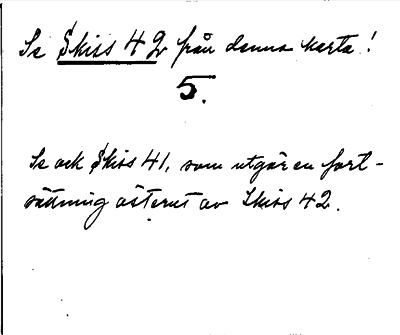 Se Skiss 42 från denna karta!
5.
Se ock Skiss 41, som utgör en fort-
sättning österut av Skiss 42.